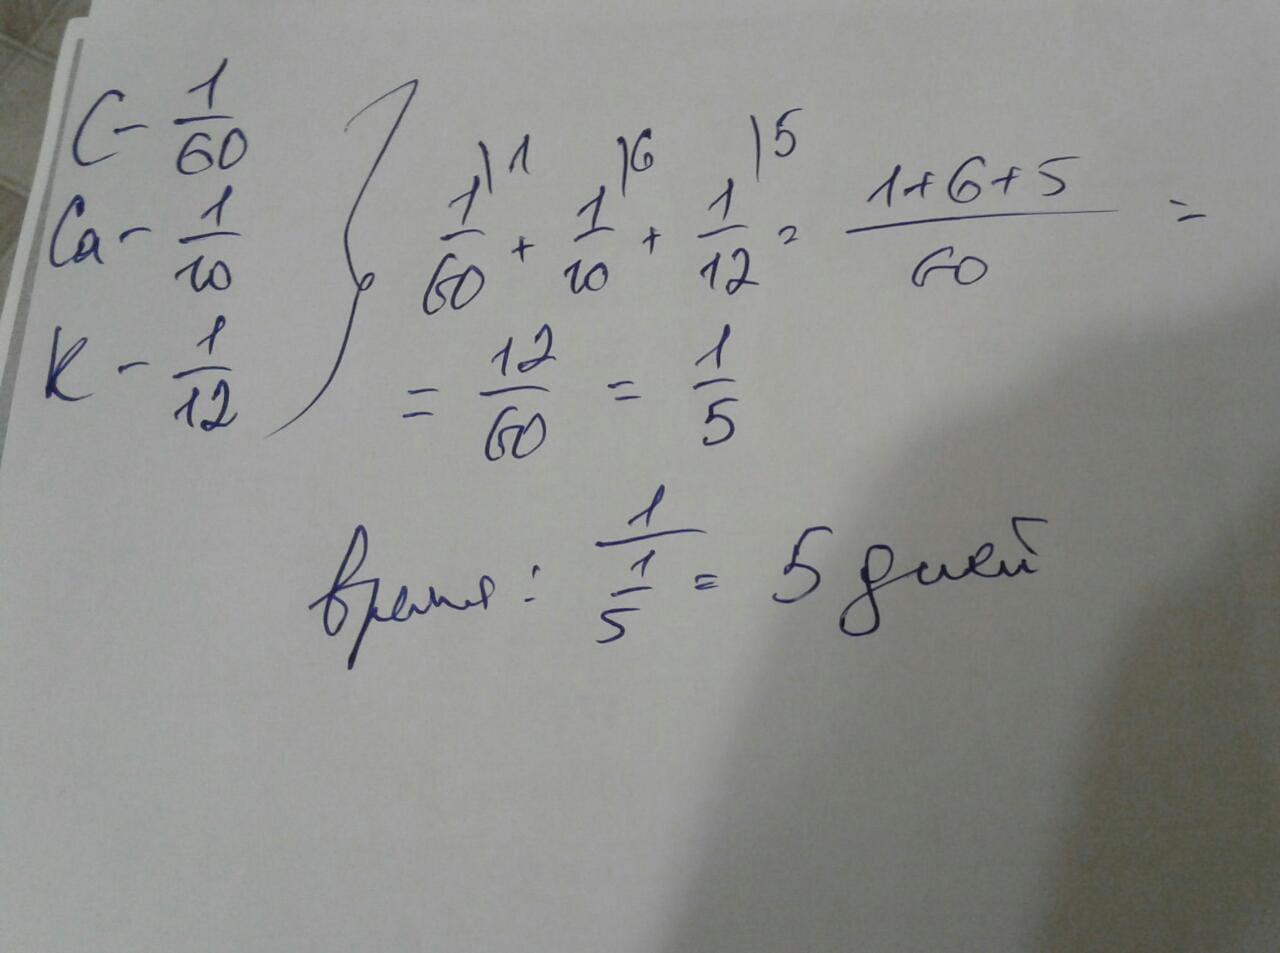 С - 1/60
Са - 1/10
К - 1/12
1/60 |1 + 1/10 |6 + 1/12 |5 = 1+6+5/60 =
= 12/60 = 1/5
время: 1/(1/5) = 5 дней